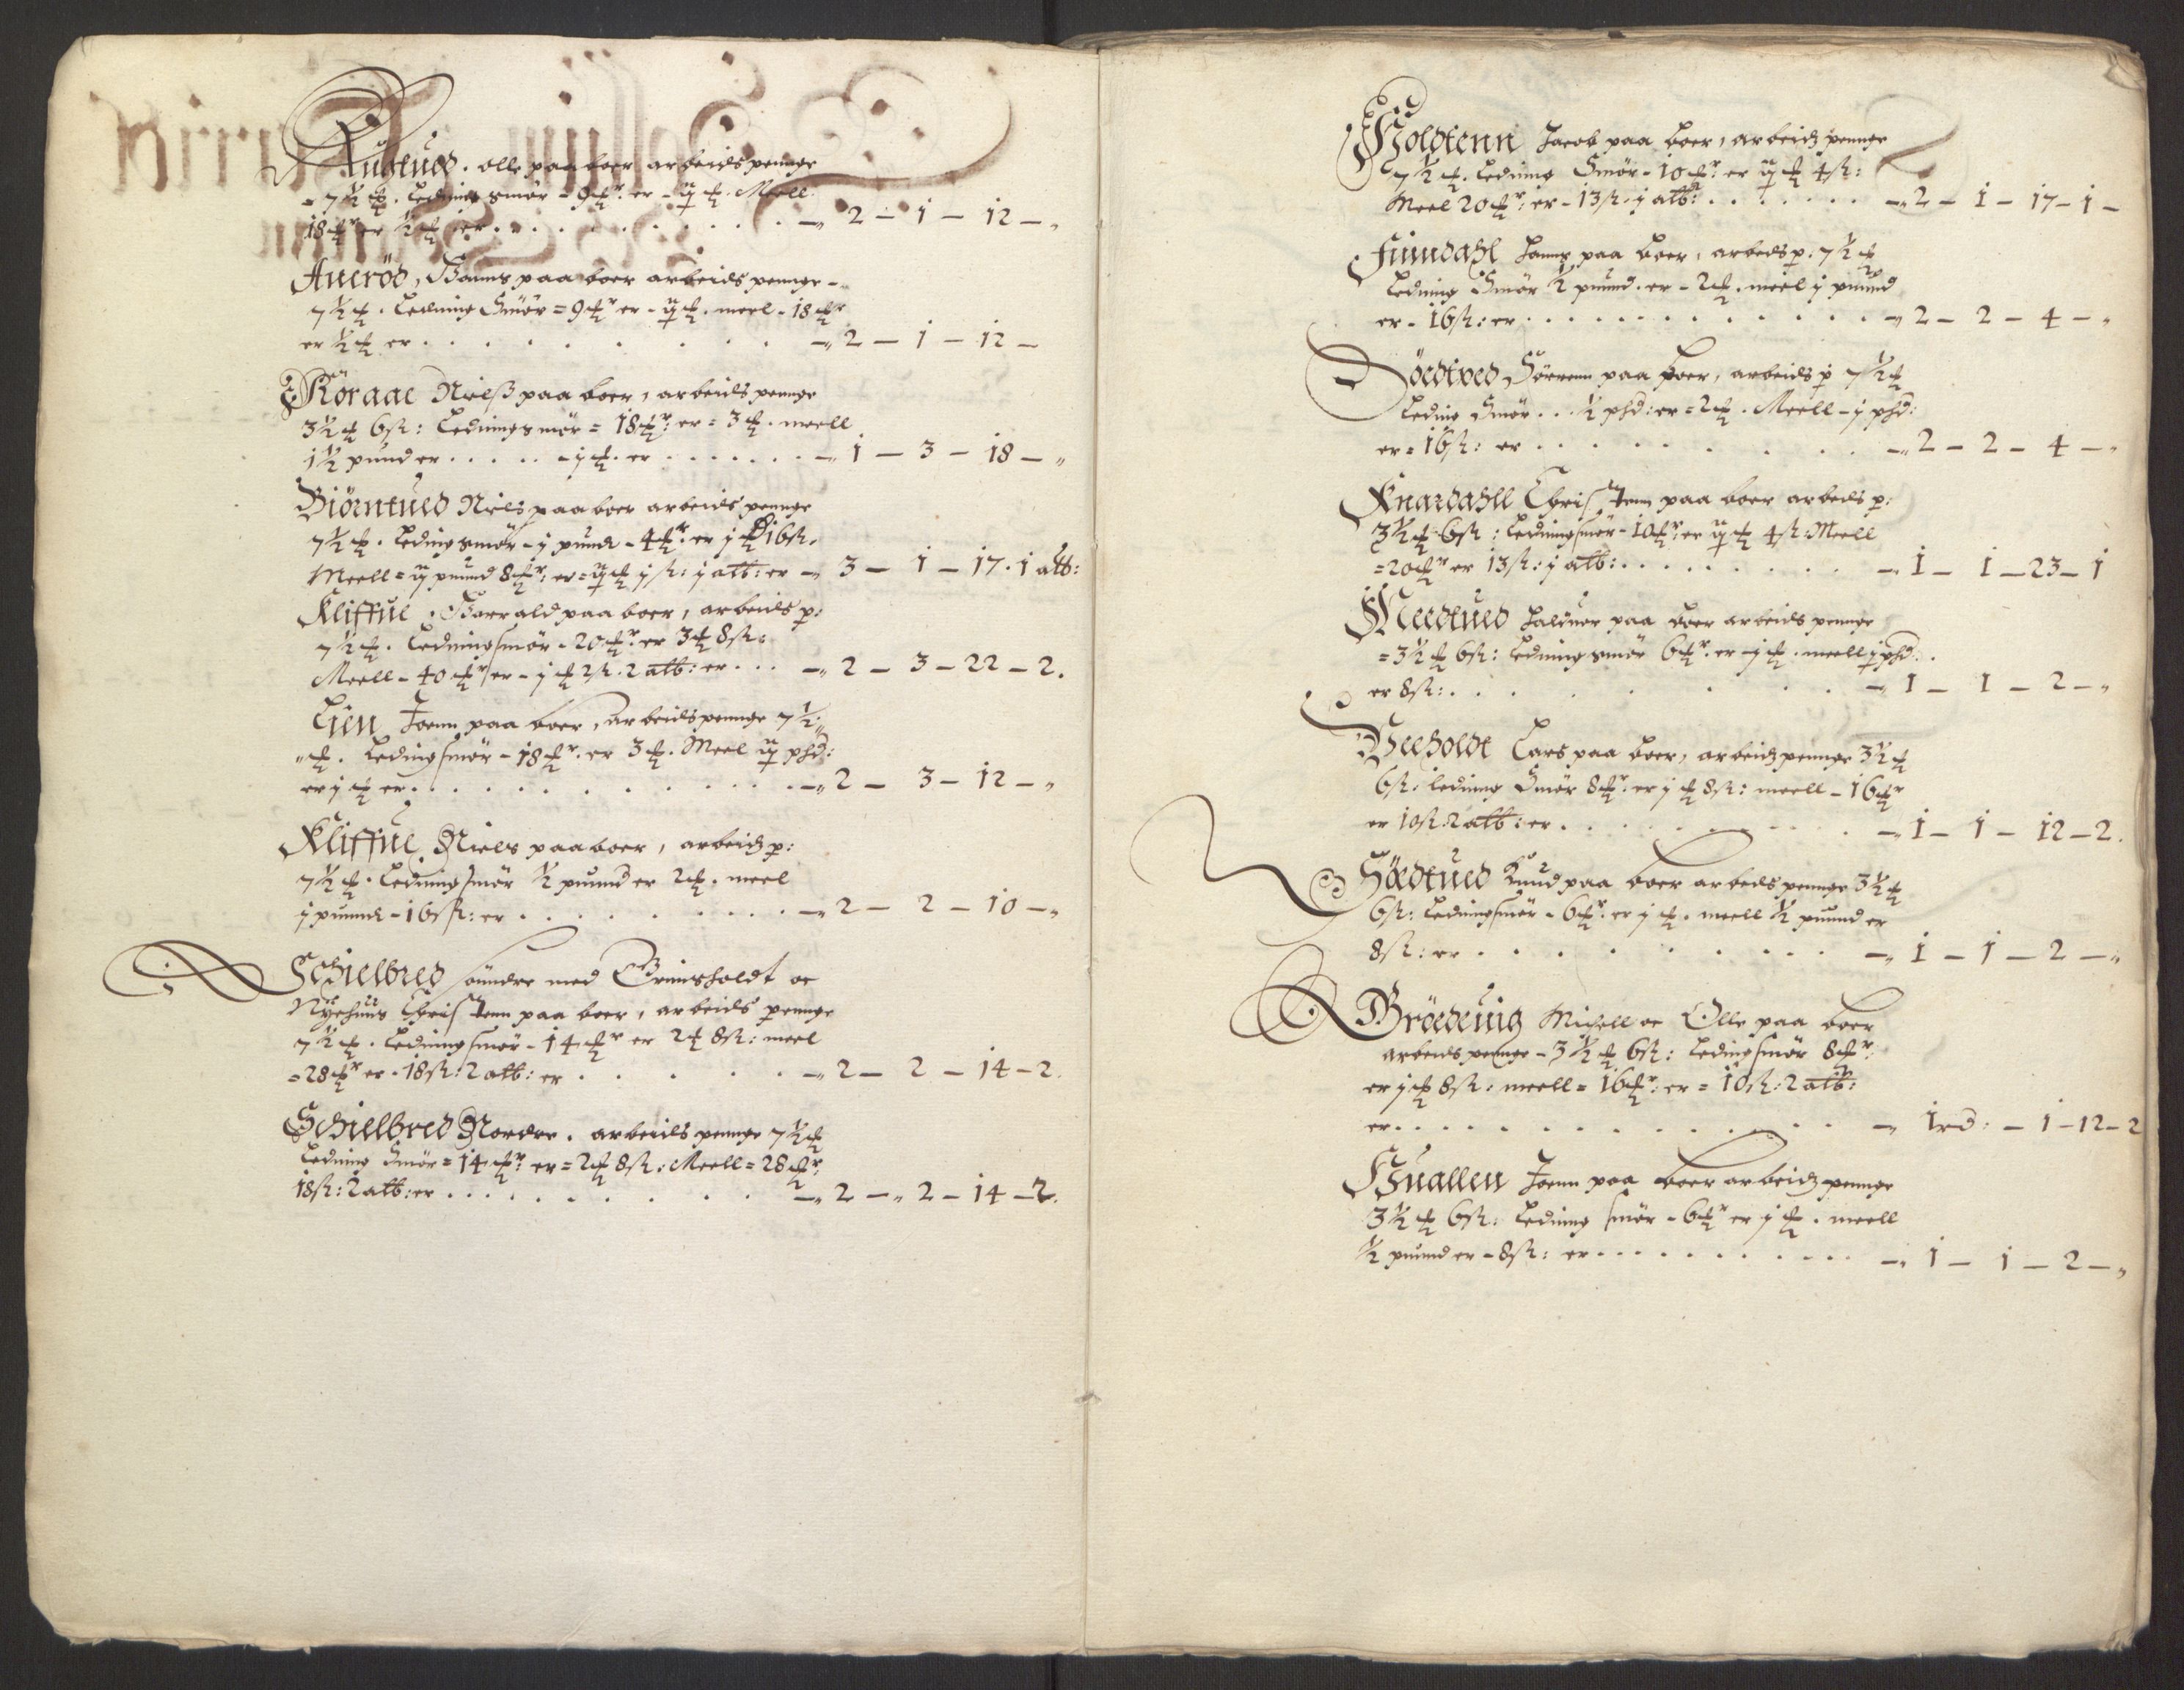 Austued. Olle paa boer arbeids penge
- 7½ ₰. Ledings smör - 9 ₰r. er - ij ₰. Meell
18 ₰r er ½ ₰ er . . . . . . . . . . — 2 — 1 — 12 — „
Aueröd, Hanns paa boer arbeids penge -
7½ ₰. Leding Smör = 9 ₰r er - ij ₰. meel - 18 ₰r
er ½ ₰ er . . . . . . . . . — 2 — 1 — 12 —
Röraae Nielß paa boer, arbeids penge
3½ ₰ 6 ß: Ledings smör = 18 ₰r: er = 3 ₰. meell
1½ pund er . . . . - j ₰. er . . . . . . . — 1 — 3 — 18 — „
Biörntued Niels paa boer arbeids penge
7½ ₰. Ledings smör - j pund - 4 ₰r: er j 16 ß.
Meell = ij puund 8 ₰r: er = ij ₰ j ß: j alb: er — 3 — 1 — 17. 1 alb:
Kliffue. Harrald paa boer, arbeids p:
7½ ₰. Ledings smör - 20 ₰r: er 3 ₰ 8 ß:
Meell - 40 ₰r er - j ₰ 2 ß. 2 alb: er . . . — 2 — 3 — 22 — 2.
Lien Joenn paa boer, arbeids penge 7½
₰. Leding smör - 18 ₰r. er 3 ₰. Meel ij phd:
er j ₰ er . . . . . . . . . . . — 2 — 3 — 12 — „
Kliffue Niels paa boer, arbeidz p:
7½ ₰. Leding smör ½ puund er 2 ₰. meel
j puund - 16 ß: er . . . . . . . . . — 2 — 2 — 10 — „
Schielbred sundre med Grimsholdt oc
Nyehuus Christenn paa boer, arbeids penge
7½ ₰. Leding smör - 14 ₰r er 2 ₰ 8 ß: meel
= 28 ₰r er - 18 ß: 2 alb: er . . . . . . — 2 — 2 — 14 — 2.
Schielbred Nordre. arbeids penge 7½ ₰
Leding Smör = 14 ₰r: er = 2 ₰ 8 ß: Meell = 28 ₰r:
18 ß: 2 alb: er . . . . . . . . . — 2 — 2 — 14 — 2.
Holdtenn Jacob paa boer, arbeidz penge
7½ ₰. Leding Smör - 10 ₰r: er ij ₰ 4 ß:
Meel 20 ₰r: er - 13 ß. j alb: . . . . . . . — 2 — 1 — 17 — 1 —
Fuindahl Hanns paa boer, arbeds p: 7½ ₰
Leding Smör ½ puund. er - 2 ₰. meel j puund
er - 16 ß: er . . . . . . . . . . . . — 2 — 2 — 4 — „
Dödtved Sörrenn paa boer, arbeids p 7½ ₰
Leding Smör . . ½ phd: er = 2 ₰. Meell - j phd:
er = 16 ß: er . . . . . . . . . — 2 — 2 — 4 — „
Knardahll Christenn paa boer arbeds p:
3½ ₰ 6 ß: Ledings smör - 10 ₰r: er ij ₰ 4 ß: Meell
= 20 ₰r er 13 ß: j alb: . . . . . . . . . — 1 — 1 — 23 — 1
Haluor paa boer arbeids penge
= 3½ ₰ 6 ß: Ledings smör 6 ₰r: er - j ₰. meell phd:
er 8 ß: . . . . . . . . — 1 — 1 — 2 — „
Veeholdt Lars paa boer, arbeidz penge 3½ ₰
6 ß. leding Smör 8 ₰r. er j ₰ 8 ß: meell - 16 ₰r
er 10 ß. 2 alb: er . . . . . . . . — 1 — 1 — 12 — 2.
Södtued Knud paa boer arbeds penge 3½ ₰
6 ß: Leding smör - 6 ₰r. er j ₰. meell ½ puund er
8 ß: er . . . . . . . . . . — 1 — 1 — 2 — „
Bröeduig Michell oc Olle paa boer
arbeids penge - 3½ ₰ 6 ß: Leding smör 8 ₰r:
er j ₰ 8 ß: meell = 16 ₰r: er = 10 ß: 2 alb:
er . . . . . . . . . . . . . . — 1 rd: — 1 — 12 — 2
Huallen Joenn paa boer arbeidz penge
3½ ₰ 6 ß: Leding smör - 6 ₰r er j ₰. meell
½ puund er - 8 ß: er . . . . . . . . . . . — 1 — 1 — 2 — „